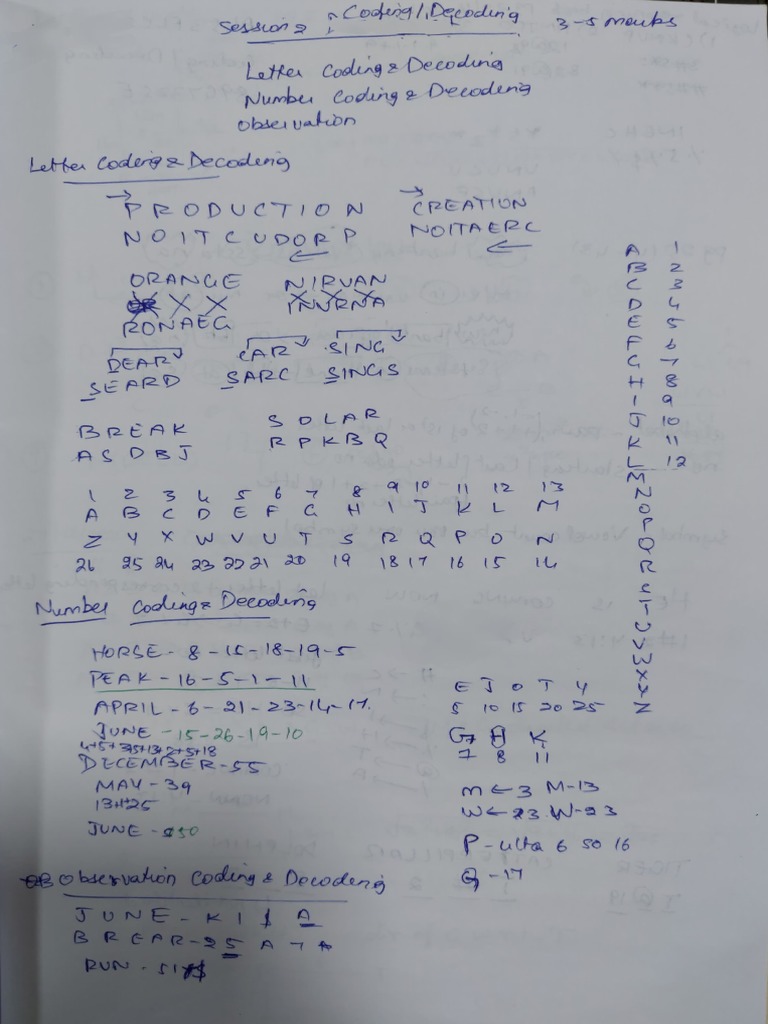 Session 2 : Coding/Decoding 3-5 marks
Letter Coding & Decoding
Number Coding & Decoding
Observation
Letter Coding & Decoding
PRODUCTION CREATION
NOITCUDORP NOITAERC
ORANGE NIRVAN
RONAEG INVRNA
DEAR CAR SING
SEARD SARC SINGS
BREAK SOLAR
ASDBJ RPKBQ
1 2 3 4 5 6 7 8 9 10 11 12 13
A B C D E F G H I J K L M
Z Y X W V U T S R Q P O N
26 25 24 23 22 21 20 19 18 17 16 15 14
A 1
B 2
C 3
D 4
E 5
F 6
G 7
H 8
I 9
J 10
K 11
L 12
M
N
O
P
Q
R
S
T
U
V
W
X
Y
Z
Number Coding & Decoding
HORSE - 8-15-18-19-5
PEAK - 16-5-1-11
APRIL - 6-21-23-14-17.
JUNE - 15-26-19-10
DECEMBER - 55
MAY - 39
13+1+25
JUNE - 50
E J O T Y
5 10 15 20 25
G H K
7 8 11
M ← 3 M-13
W ← 23 W-23
P - ulta 6 so 16
Q - 17
Observation Coding & Decoding
JUNE - K 1 1 A
BREAR - 25 A 7
RUN - 51